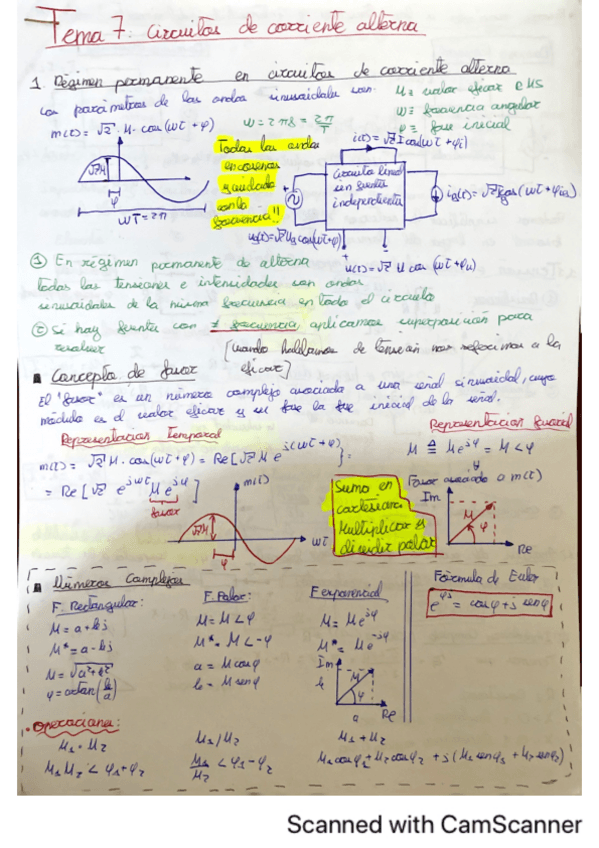 Tema 7: Circuitos de corriente alterna
1. Régimen permanente en circuitos de corriente alterna
Los parámetros de las ondas sinusoidales son:
M ≡ valor eficaz o RMS
ω ≡ frecuencia angular
φ ≡ fase inicial
m(t) = √2 · M · cos(ωt + φ)
ω = 2πf = 2π/T
√2M
φ
ωT = 2π
Todas las ondas
en cosenos
y cuidado
con la
frecuencia!!
i(t) = √2 I cos(ωt + φi)
Circuito lineal
sin fuentes
independientes
u(t) = √2 U cos(ωt + φu)
① En régimen permanente de alterna
todas las tensiones e intensidades son ondas
sinusoidales de la misma frecuencia en todo el circuito
② Si hay fuentes con ≠ frecuencia, aplicamos superposición para
resolver
[cuando hablamos de tensión nos referimos a la
eficaz]
Concepto de fasor
El "fasor" es un número complejo asociado a una señal sinusoidal, cuyo
módulo es el valor eficaz y su fase la fase inicial de la señal.
Representación temporal
Representación fasorial
m(t) = √2 M · cos(ωt + φ) = Re[√2 M e^j(ωt + φ)] =
M ≜ M e^jφ = M < φ
= Re[√2 e^jωt M e^jφ]
fasor
m(t)
√2M
φ
ωt
Sumo en
cartesianas.
Multiplicar y
dividir polar
Fasor asociado a m(t)
Im
M
φ
Re
Números Complejos
F. Rectangular:
M = a + bj
M* = a - bj
M = √a²+b²
φ = arctan(b/a)
F. Polar:
M = M < φ
M* = M < -φ
a = M cosφ
b = M senφ
F exponencial
M = M e^jφ
M* = M e^-jφ
Im
b
M
φ
a
Re
Fórmula de Euler
e^φj = cosφ + j senφ
Operaciones:
M1 · M2
M1 M2 < φ1 + φ2
M1 / M2
M1/M2 < φ1 - φ2
M1 + M2
M1 cosφ1 + M2 cosφ2 + j(M1 senφ1 + M2 senφ2)
Scanned with CamScanner